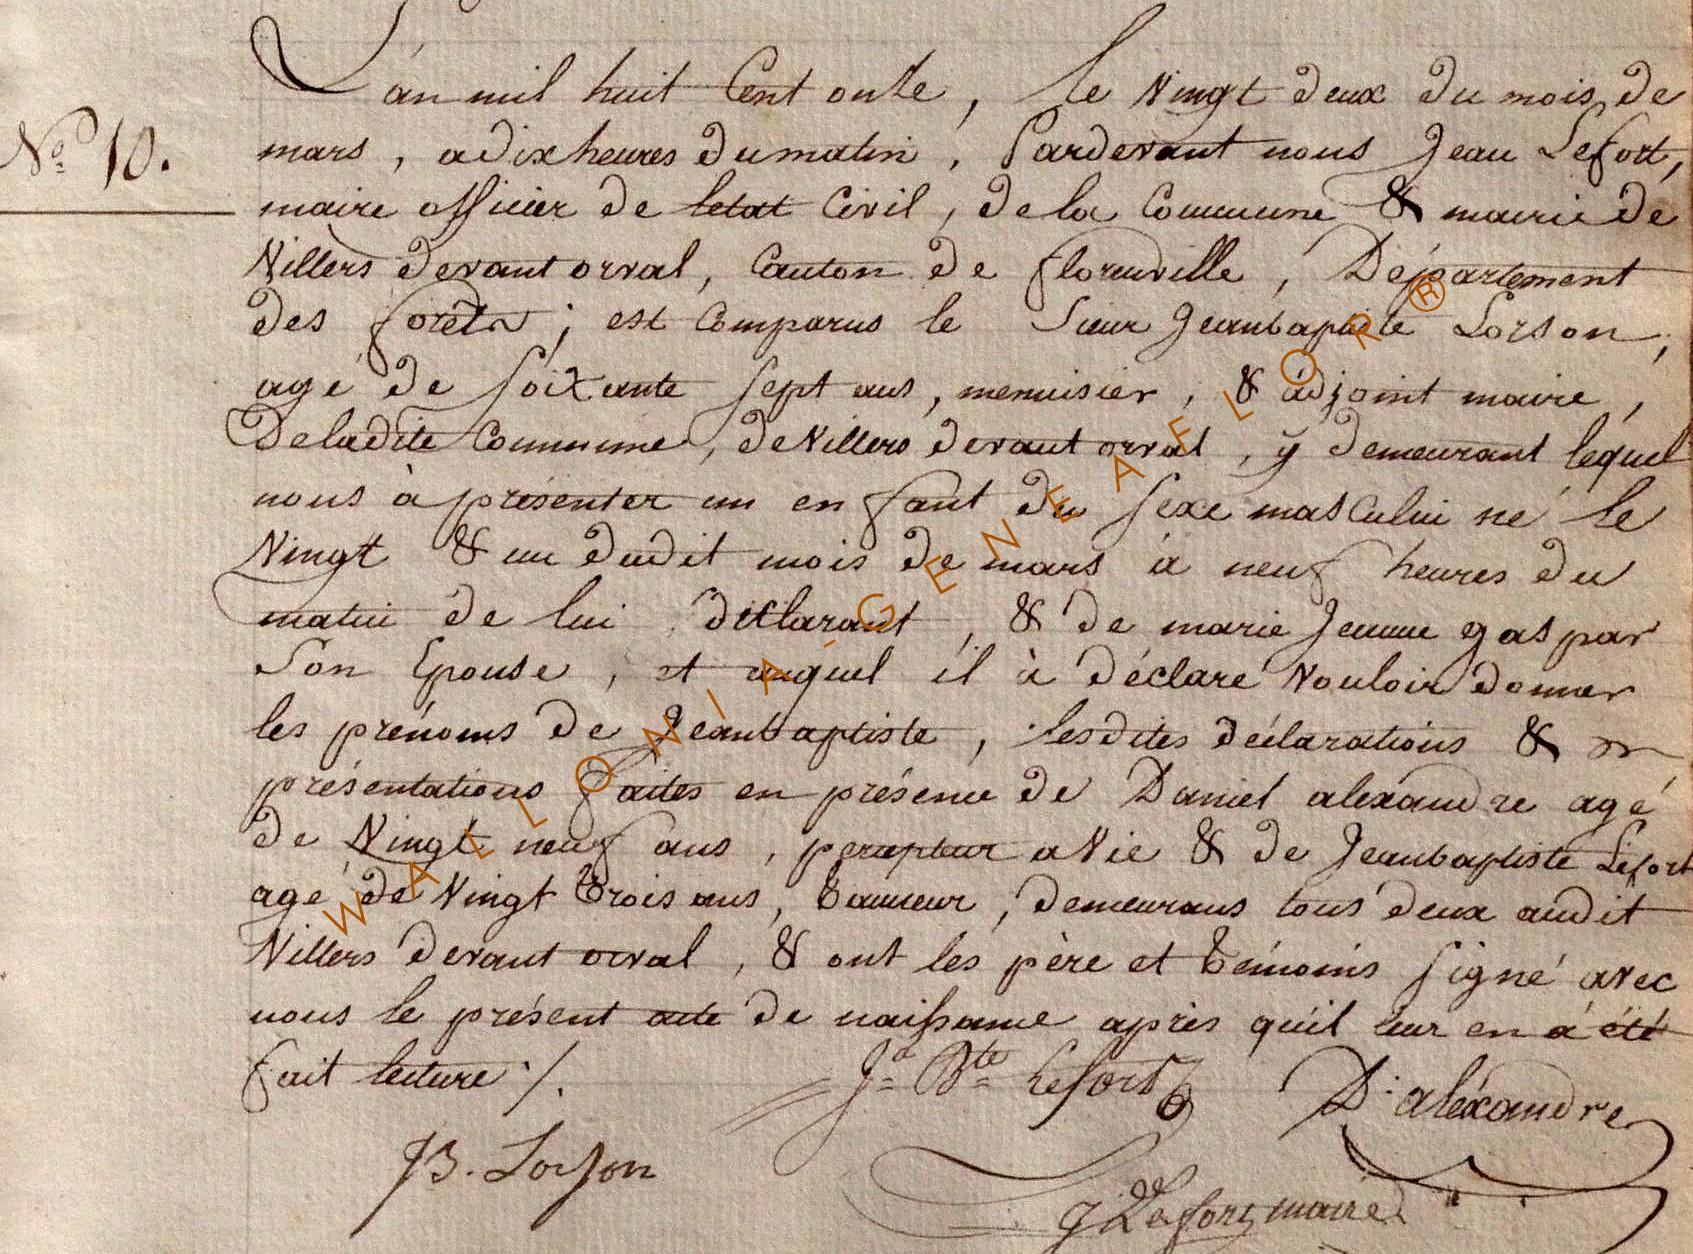 L'an mil huit Cent onze, le Vingt deux du mois de
No 10.
mars, a dix heures du matin, Pardevant nous Jean Lefort,
maire officier de letat Civil, de la Commune & mairie de
Villers devant orval, Canton de florenville, Département
des forêts ; est Comparus le Sieur Jeanbaptiste Lorson,
agé de soixante sept ans, menuisier, & adjoint maire,
De ladite Commune, de Villers devant orval, y demeurant lequel
nous à présenter un enfant du sexe masculin né le
Vingt & un dudit mois de mars à neuf heures du
matin de lui déclarant, & de marie Jeanne gaspar
Son Epouse, et auquel il à déclaré Vouloir donner
les prénoms de Jeanbaptiste, lesdites déclarations &
présentations faites en présence de Daniel alexandre agé
de Vingt neuf ans, percepteur a Vie & de Jeanbaptiste Lefort
agé de Vingt trois ans, tanneur, demeurans tous deux audit
Villers devant orval, & ont les père et témoins signé avec
nous le présent acte de naissance après qu'il leur en à été
fait lecture ./.
Jn Bte Lefort
D. aléxandre
JB. Lorson
J Lefort maire
WALLONIA-GENEAFLOR®